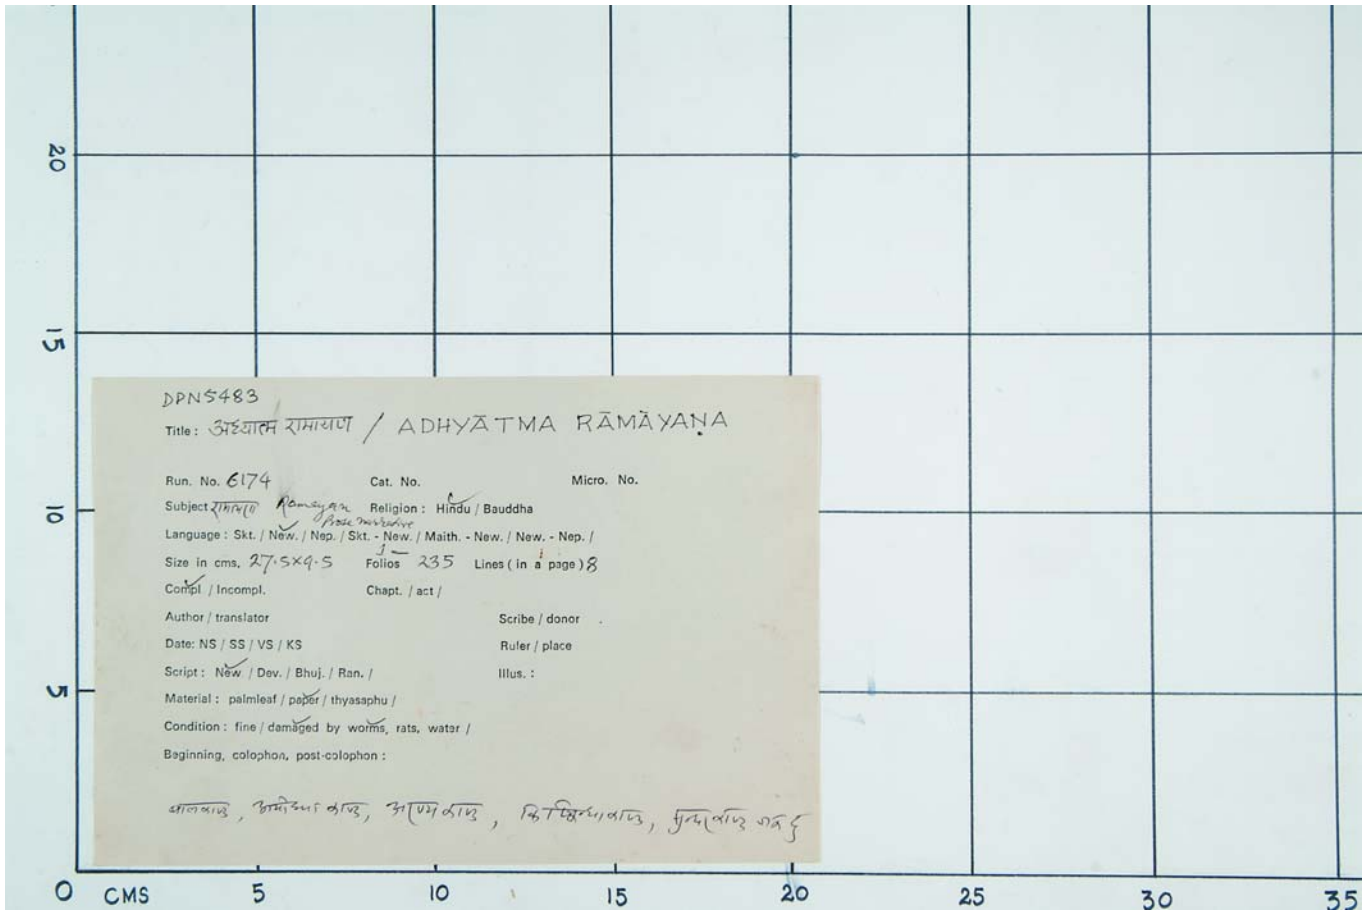 20
15
DPN5483
Title : अध्यात्म रामायण / ADHYĀTMA RĀMĀYAṆA
Run. No. 6174 Cat. No. Micro. No.
10
Subject रामायण Ramayan Religion : Hindu / Bauddha
Prose narrative
Language : Skt. / New. / Nep. / Skt. - New. / Maith. - New. / New. - Nep. /
Size in cms. 27.5×9.5 Folios 235 Lines ( in a page ) 8
Compl. / Incompl. Chapt. / act /
Author / translator Scribe / donor
Date: NS / SS / VS / KS Ruler / place
Script : New / Dev. / Bhuj. / Ran. / Illus. :
5
Material : palmleaf / paper / thyasaphu /
Condition : fine / damaged by worms, rats, water /
Beginning, colophon, post-colophon :
बालकाण्ड, अयोध्या काण्ड, अरण्य काण्ड, किष्किन्धा काण्ड, सुन्दरकाण्ड
0 CMS 5 10 15 20 25 30 35